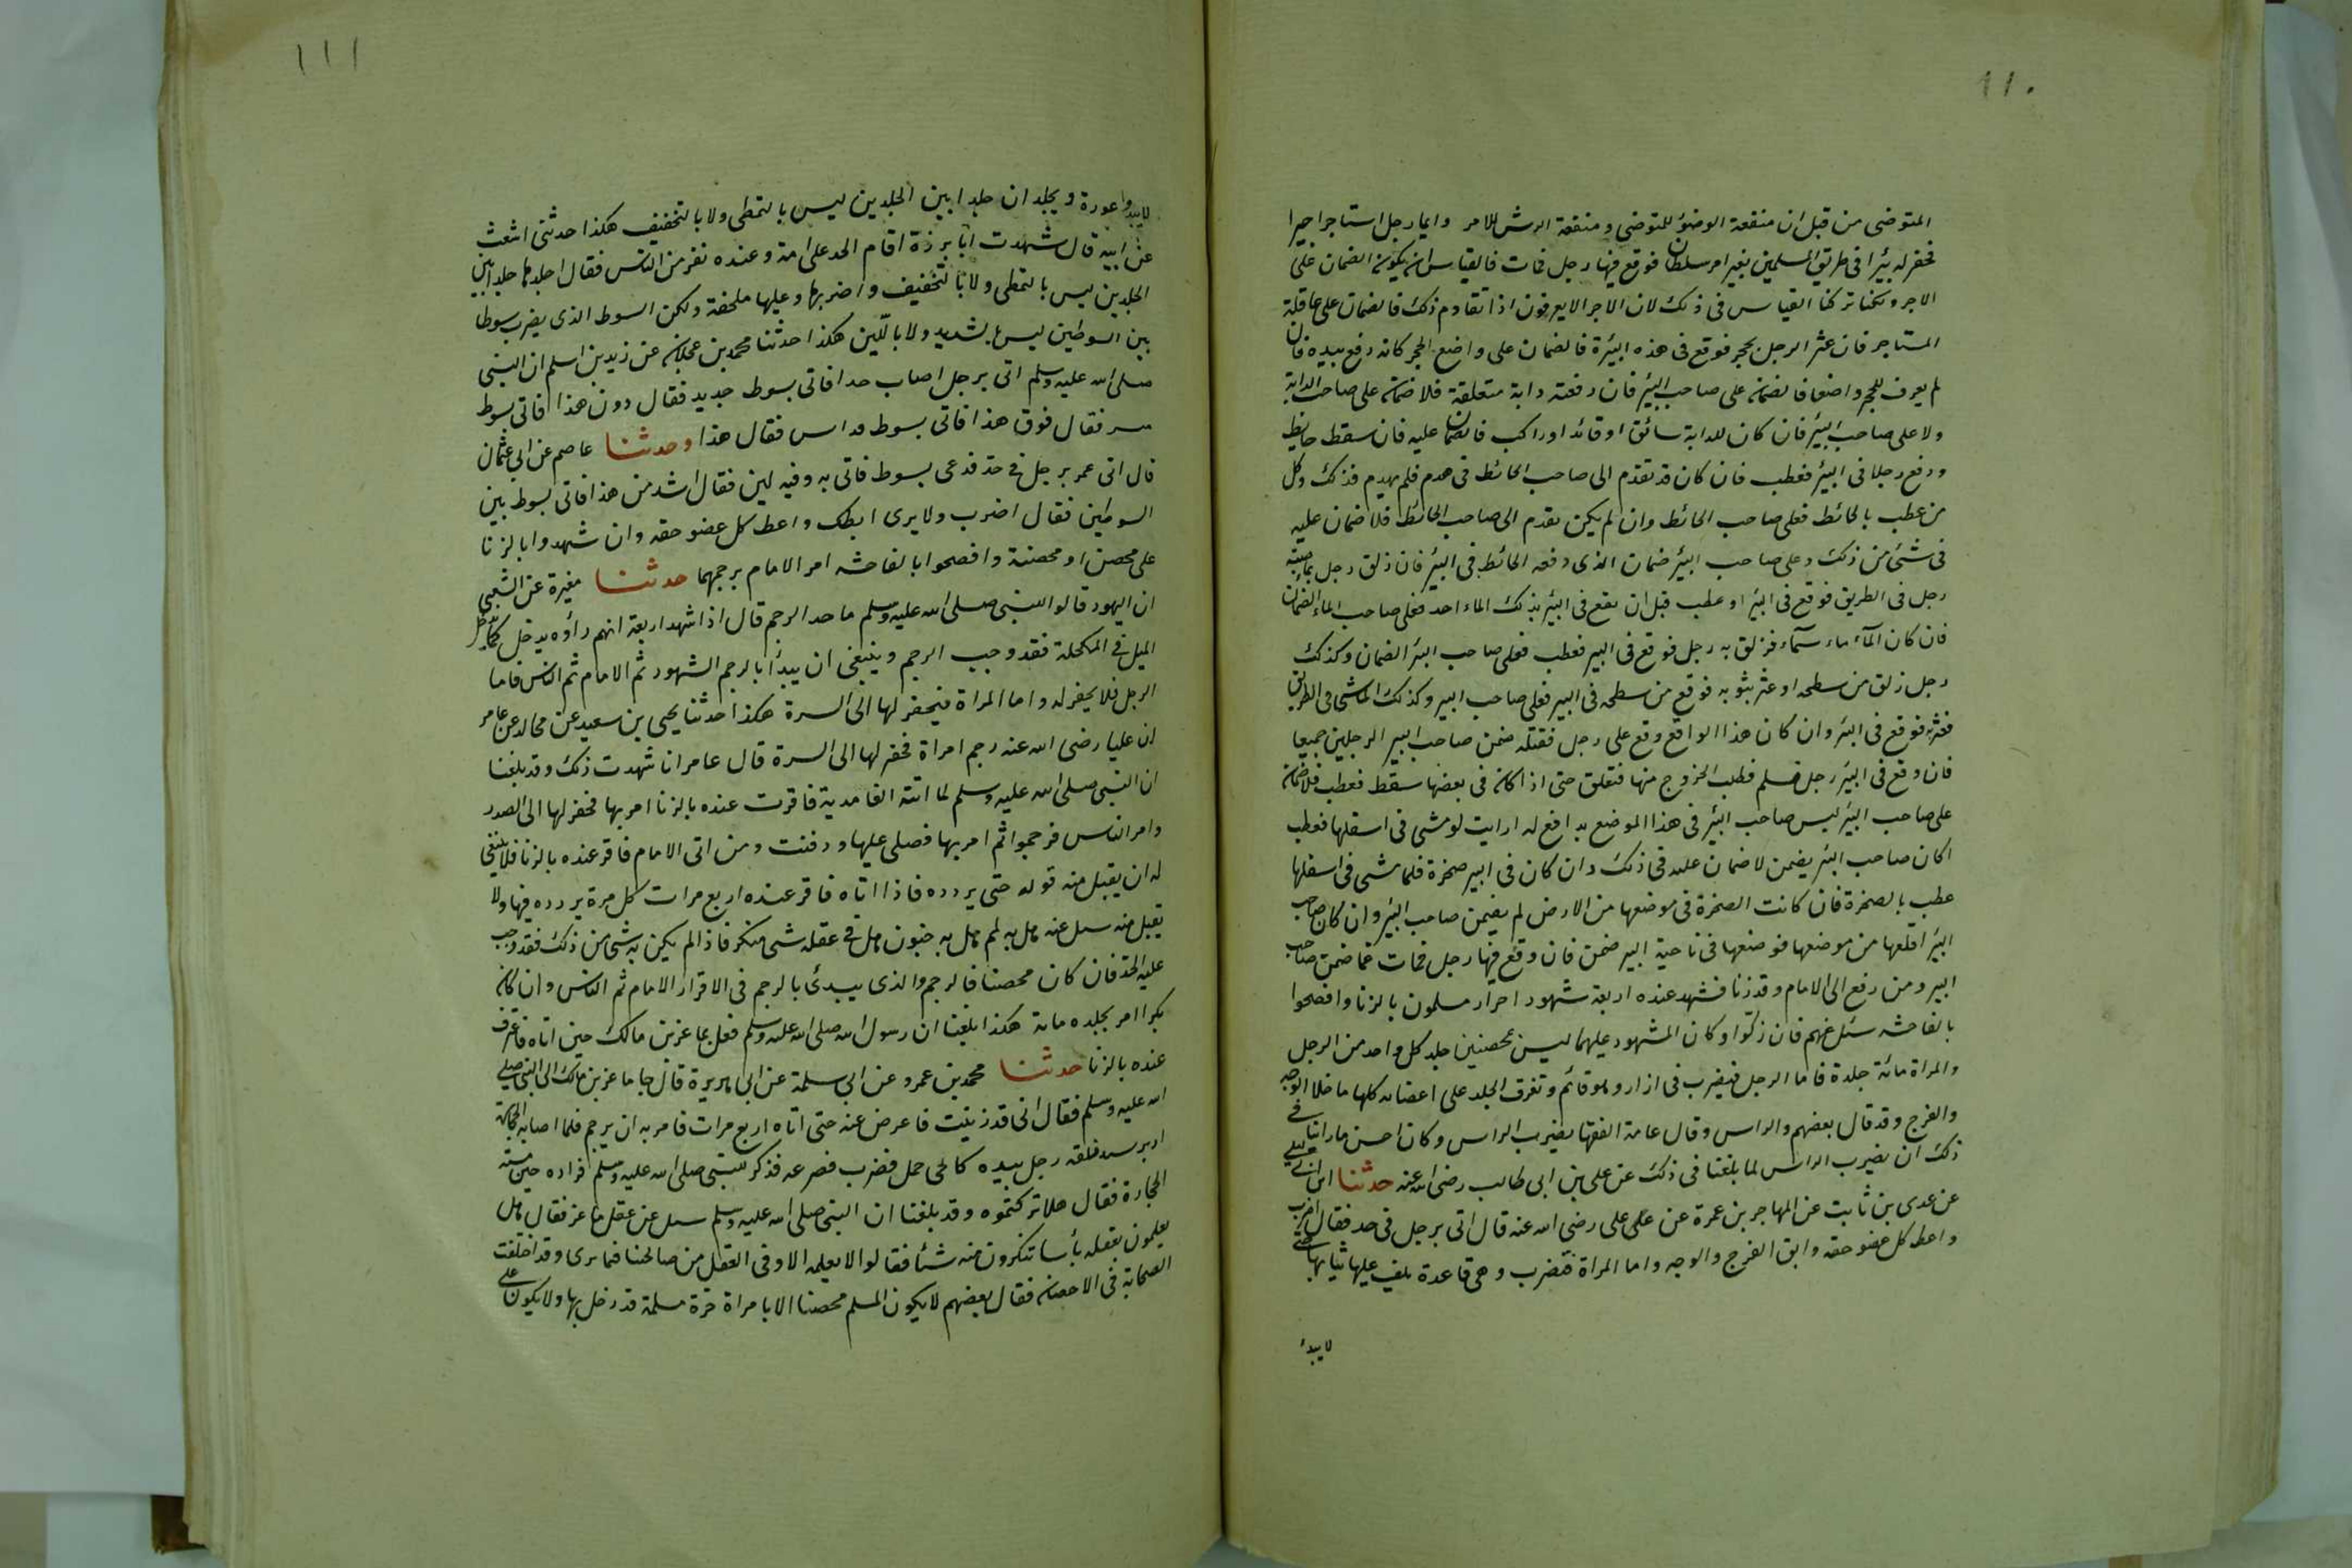 ١١٠
المتوضى من قبل ان منفعة الوضؤ للمتوضى ومنفعة الرش للامر وايما رجل استاجر اجيرا
فحفر له بئرا فى طريق المسلمين بغير امر سلطان فوقع فيها رجل فمات فالقياس ان يكون الضمان على
الاجر ولكنا تركنا القياس فى ذلك لان الاجرا لايعرفون اذا تقادم ذلك فالضمان على عاقلة
المستاجر فان عثر الرجل بحجر فوقع فى هذه البئرة فالضمان على واضع الحجر كانه دفع بيده فان
لم يعرف للحجر واضعا فالضمان على صاحب البئر فان دفعته دابة متعلقة فلا ضمان على صاحب الدابة
ولا على صاحب البئر فان كان للدابة سائق او قائد او راكب فالضمان عليه فان سقط حايط
ودفع رجلا فى البئر فعطب فان كان قد تقدم الى صاحب الحائط فى هدم فلم يهدم فذلك وكل
من عطب بالحائط فعلى صاحب الحائط وان لم يكن تقدم الى صاحب الحائط فلا ضمان عليه
فى شئ من ذلك وعلى صاحب البئر ضمان الذى دفعه الحائط فى البئر فان زلق رجل بماء صبه
رجل فى الطريق فوقع فى البئر او عطب قبل ان يقع فى البئر بذلك الماء احد فعلى صاحب الماء الضمان
فان كان المآء ماء سمآء فزلق به رجل فوقع فى البير فعطب فعلى صاحب البئر الضمان وكذلك
رجل زلق من سطحه او عثر بثوبه فوقع من سطحه فى البير فعلى صاحب البير وكذلك الماشى فى الطريق
فعثر به فوقع فى البئر وان كان هذا الواقع وقع على رجل فقتله ضمن صاحب البير الرجلين جميعا
فان وقع فى البئر رجل فسلم فطلب الخروج منها فتعلق حتى اذا كان فى بعضها سقط فعطب فلا ضمان
على صاحب البئر ليس صاحب البئر فى هذا الموضع بدافع له ارايت لو مشى فى اسفلها فعطب
اكان صاحب البئر يضمن لا ضمان عليه فى ذلك وان كان فى البير صخرة فلما مشى فى اسفلها
عطب بالصخرة فان كانت الصخرة فى موضعها من الارض لم يضمن صاحب البئر وان كان صاحب
البئر اقلعها من موضعها فوضعها فى ناحية البير ضمن فان وقع فيها رجل فمات غما ضمن صاحب
البير ومن رفع الى الامام وقد زنا فشهد عنده اربعة شهود احرار مسلمون بالزنا وافصحوا
بالفاحشه سئل عنهم فان زكّوا وكان المشهود عليهما ليس بمحصنين جلد كل واحد من الرجل
والمراة مائة جلدة فاما الرجل فيضرب فى ازار وهو قائم وتفرق الجلد على اعضائه كلها ما خلا الوجه
والفرج وقد قال بعضهم والراس وقال عامة الفقها يضرب الراس وكان احسن ما راينا فى
ذلك ان يضرب الراس لما بلغنا فى ذلك عن على بن ابى طالب رضى الله عنه حدثنا ابن ابى ليلى
عن عدى بن ثابت عن المهاجر بن عمرة عن على على رضى الله عنه قال اتى برجل فى حد فقال اضرب
واعط كل عضو حقه وابق الفرج والوجه واما المراة فتضرب وهى قاعدة يلف عليها ثيابها حتى
لايبدأ
١١١
لايبدوا عورة ويجلدان جلدا بين الجلدين ليس بالتمطى ولا بالتخفيف هكذا حدثنى اشعث
عن ابيه قال شهدت ابا برزة اقام الحد على امة وعنده نفر من الناس فقال اجلدها جلدا بين
الجلدين ليس بالتمطى ولا بالتخفيف واضربها وعليها ملحفة ولكن السوط الذى يضرب سوطا
بين السوطين ليس بالشديد ولا باللّين هكذا حدثنا محمد بن عجلان عن زيد بن اسلم ان النبى
صلى الله عليه وسلم اتى برجل اصاب حدا فاتى بسوط جديد فقال دون هذا فاتى بسوط
فقال فوق هذا فاتى بسوط فقال هذا وحدثنا عاصم عن ابى عثمان
قال اتى عمر برجل فى حد فدعى بسوط فاتى به وفيه لين فقال اشد من هذا فاتى بسوط بين
السوطين فقال اضرب ولا يرى ابطك واعط كل عضو حقه وان شهدوا بالزنا
على محصن او محصنة وافصحوا بالفاحشه امر الامام برجمهما حدثنا مغيرة عن الشعبى
ان اليهود قالوا للنبى صلى الله عليه وسلم ما حد الرجم قال اذا شهد اربعة انهم راؤه يدخل كما يدخل
الميل فى المكحلة فقد وجب الرجم وينبغى ان يبدأ بالرجم الشهود ثم الامام ثم الناس فاما
الرجل فلا يحفر له واما المراة فيحفر لها الى السرة هكذا حدثنا يحيى بن سعيد عن مجالد عن عامر
ان عليا رضى الله عنه رجم امراة فحفر لها الى السرة قال عامر انا شهدت ذلك وقد بلغنا
ان النبى صلى الله عليه وسلم لما اتته الغامدية فاقرت عنده بالزنا امر بها فحفر لها الى الصدر
وامر الناس فرجموا ثم امر بها فصلى عليها ودفنت ومن اتى الامام فاقر عنده بالزنا فلا ينبغى
له ان يقبل منه قوله حتى يردده فاذا اتاه فاقر عنده اربع مرات كل مرة يردده فيها ولا
يقبل منه سئل عنه هل به لمم هل به جنون هل فى عقله شى منكر فاذا لم يكن به شى من ذلك فقد وجب
عليه الحد فان كان محصنا فالرجم والذى يبدئ بالرجم فى الاقرار الامام ثم الناس وان كان
بكرا امر بجلده مائة هكذا بلغنا ان رسول الله صلى الله عليه وسلم فعل بماعز بن مالك حين اتاه فاعترف
عنده بالزنا حدثنا محمد بن عمرو عن ابى سلمة عن ابى هريرة قال جا ماعز بن مالك الى النبى صلى
الله عليه وسلم فقال انى قد زنيت فاعرض عنه حتى اتاه اربع مرات فامر به ان يرجم فلما اصابه الحجارة
ادبر فلقه رجل بيده لحى جمل فضرب فصرعه فذكر للنبى صلى الله عليه وسلم فراره حين مسته
الحجارة فقال هلا تركتموه وقد بلغنا ان النبى صلى الله عليه وسلم سئل عن عقل ماعز فقال هل
تعلمون بعقله بأسا تنكرون منه شئا فقالوا لا نعلمه الا وفى العقل من صالحنا فيما نرى وقد اختلفت
الصحابة فى الاحصان فقال بعضهم لا يكون المسلم محصنا الا بامراة حرة مسلمة قد دخل بها ولا يكون على